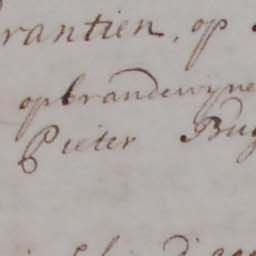 rantien, op
op brandewyne
Pieter Bug